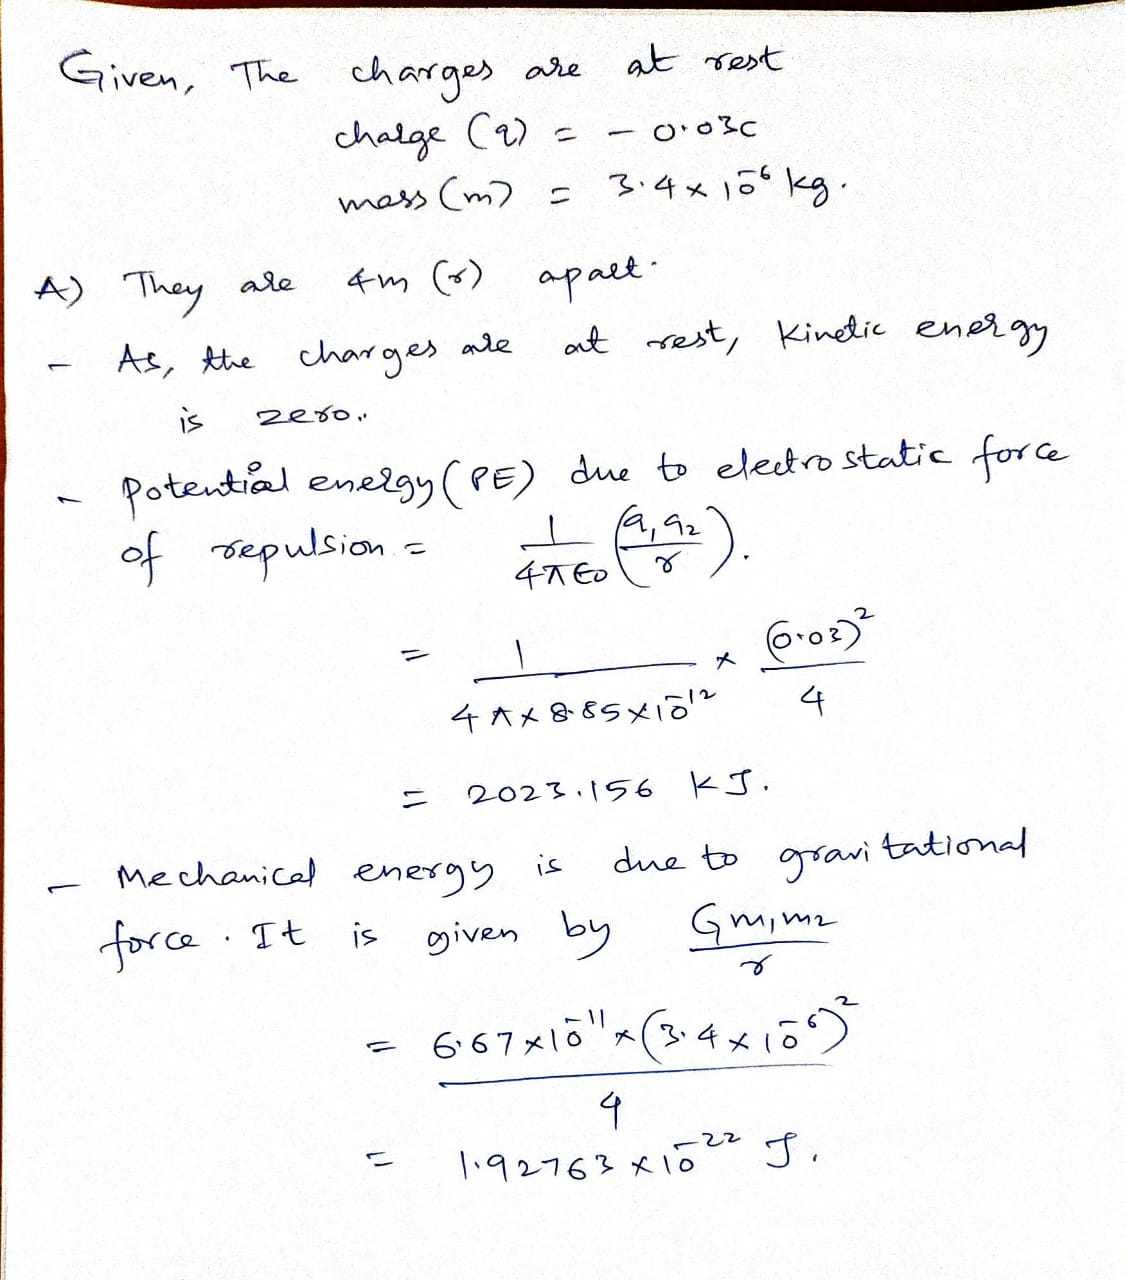 Given, The charges are at rest
charge (q) = - 0.03c
mass (m) = 3.4 x 10⁻⁶ kg.
A) They are 4m (r) apart.
- As, the charges are at rest, Kinetic energy
is zero..
- Potential energy (PE) due to electrostatic force
of repulsion = 1/4πϵ0 (q1q2/r).
= 1/4π x 8.85 x 10⁻¹² x (0.03)²/4
= 2023.156 kJ.
- Mechanical energy is due to gravitational
force. It is given by Gm1m2/r
= 6.67 x 10⁻¹¹ x (3.4 x 10⁻⁶)²/4
= 1.92763 x 10⁻²² J.